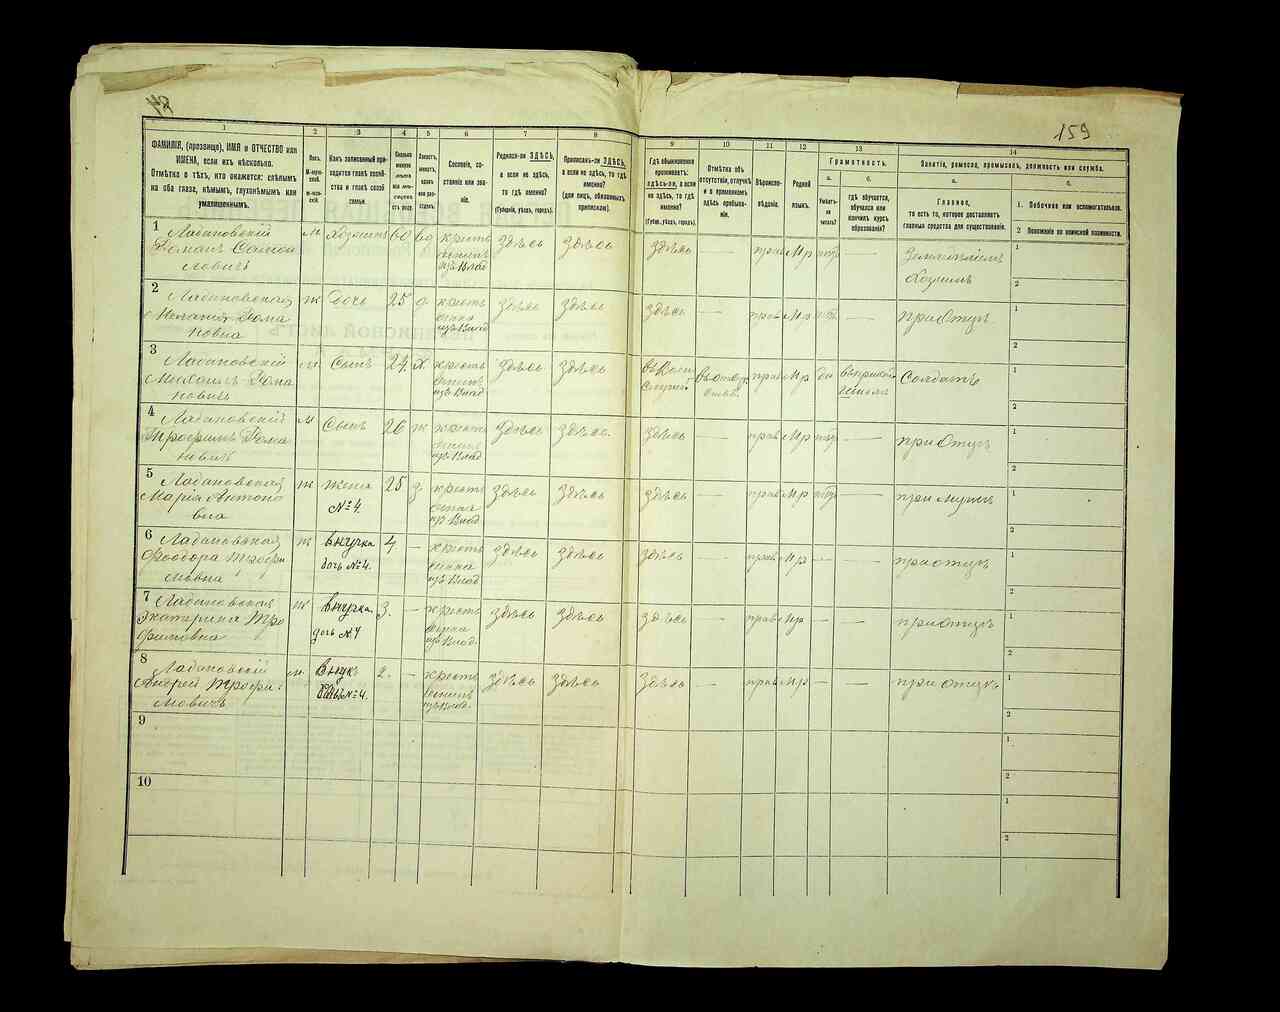 159
1
2
3
4
5
6
7
8
9
10
11
12
13
14
ФАМИЛІЯ, (прозвище), ИМЯ и ОТЧЕСТВО или
ИМЕНА, если ихъ нѣсколько.
Отмѣтка о тѣхъ, кто окажется: слѣпымъ
на оба глаза, нѣмымъ, глухонѣмымъ или
умалишеннымъ.
Полъ.
М-муж-
ской.
Ж-жен-
скій.
Какъ записанный при-
ходится главѣ хозяй-
ства и главѣ своей
семьи.
Сколько
минуло
лѣтъ
или мѣ-
сяцевъ
отъ роду.
Холостъ,
женатъ,
вдовъ
или раз-
веденъ.
Сословіе, со-
стояніе или зва-
ніе.
Родился-ли ЗДѢСЬ,
а если не здѣсь,
то гдѣ именно?
(Губернія, уѣздъ, городъ).
Приписанъ-ли ЗДѢСЬ,
а если не здѣсь, то гдѣ
именно?
(для лицъ, обязанныхъ
припискою).
Гдѣ обыкновенно
проживаетъ:
здѣсь-ли, а если
не здѣсь, то гдѣ
именно?
(Губерн., уѣздъ, городъ).
Отмѣтка объ
отсутствіи, отлучкѣ
и о временномъ
здѣсь пребыва-
ніи.
Вѣроиспо-
вѣданіе.
Родной
языкъ.
Грамотность.
а.
Умѣетъ-
ли
читать?
б.
гдѣ обучается,
обучался или
кончилъ курсъ
образованія?
Занятіе, ремесло, промыселъ, должность или служба.
а.
Главное,
то есть то, которое доставляетъ
главныя средства для существованія.
б.
1. Побочное или вспомогательное.
2 Положеніе по воинской повинности.
1 Лабановскій
Романъ Самой
ловичъ
м Хозяинъ 60 вд крест
изъ Влад
здѣсь здѣсь здѣсь — прав Мр — Земледѣлецъ
Хозяинъ
1
2
2 Лабановская
Меланія Рома
новна
ж дочь 25 д крест
изъ Влад
здѣсь здѣсь здѣсь — прав Мр — при Отцѣ
1
2
3 Лабановскій
Михаилъ Рома
новичъ
м. Сынъ 24 х. крест
изъ Влад
здѣсь здѣсь прав Мр да Солдатъ
1
2
4 Лабановскій
Трофимъ Рома
новичъ
м Сынъ 26 ж крест
изъ Влад
здѣсь здѣсь. здѣсь — прав Мр — при Отцѣ
1
2
5 Лабановская
Марія Антоно
вна
ж жена 25 з крест
№ 4.
изъ Влад
здѣсь здѣсь здѣсь — прав Мр — при мужѣ
1
2
6 Лабановская
Феодора Трофи
мовна
ж внучка 4 — крест
дочь № 4.
изъ Влад
здѣсь здѣсь здѣсь — прав Мр — — при отцѣ
1
2
7 Лабановская
Екатерина Тро
фимовна
ж внучка 3. — крест
дочь № 4
изъ Влад
здѣсь здѣсь здѣсь — прав Мр — — при Отцѣ
1
2
8 Лабановскій
Андрей Трофи
мовичъ
м. внукъ 2. — крест
№ 4.
изъ Влад.
здѣсь здѣсь здѣсь — прав Мр — — при отцѣ
1
2
9
1
2
10
1
2